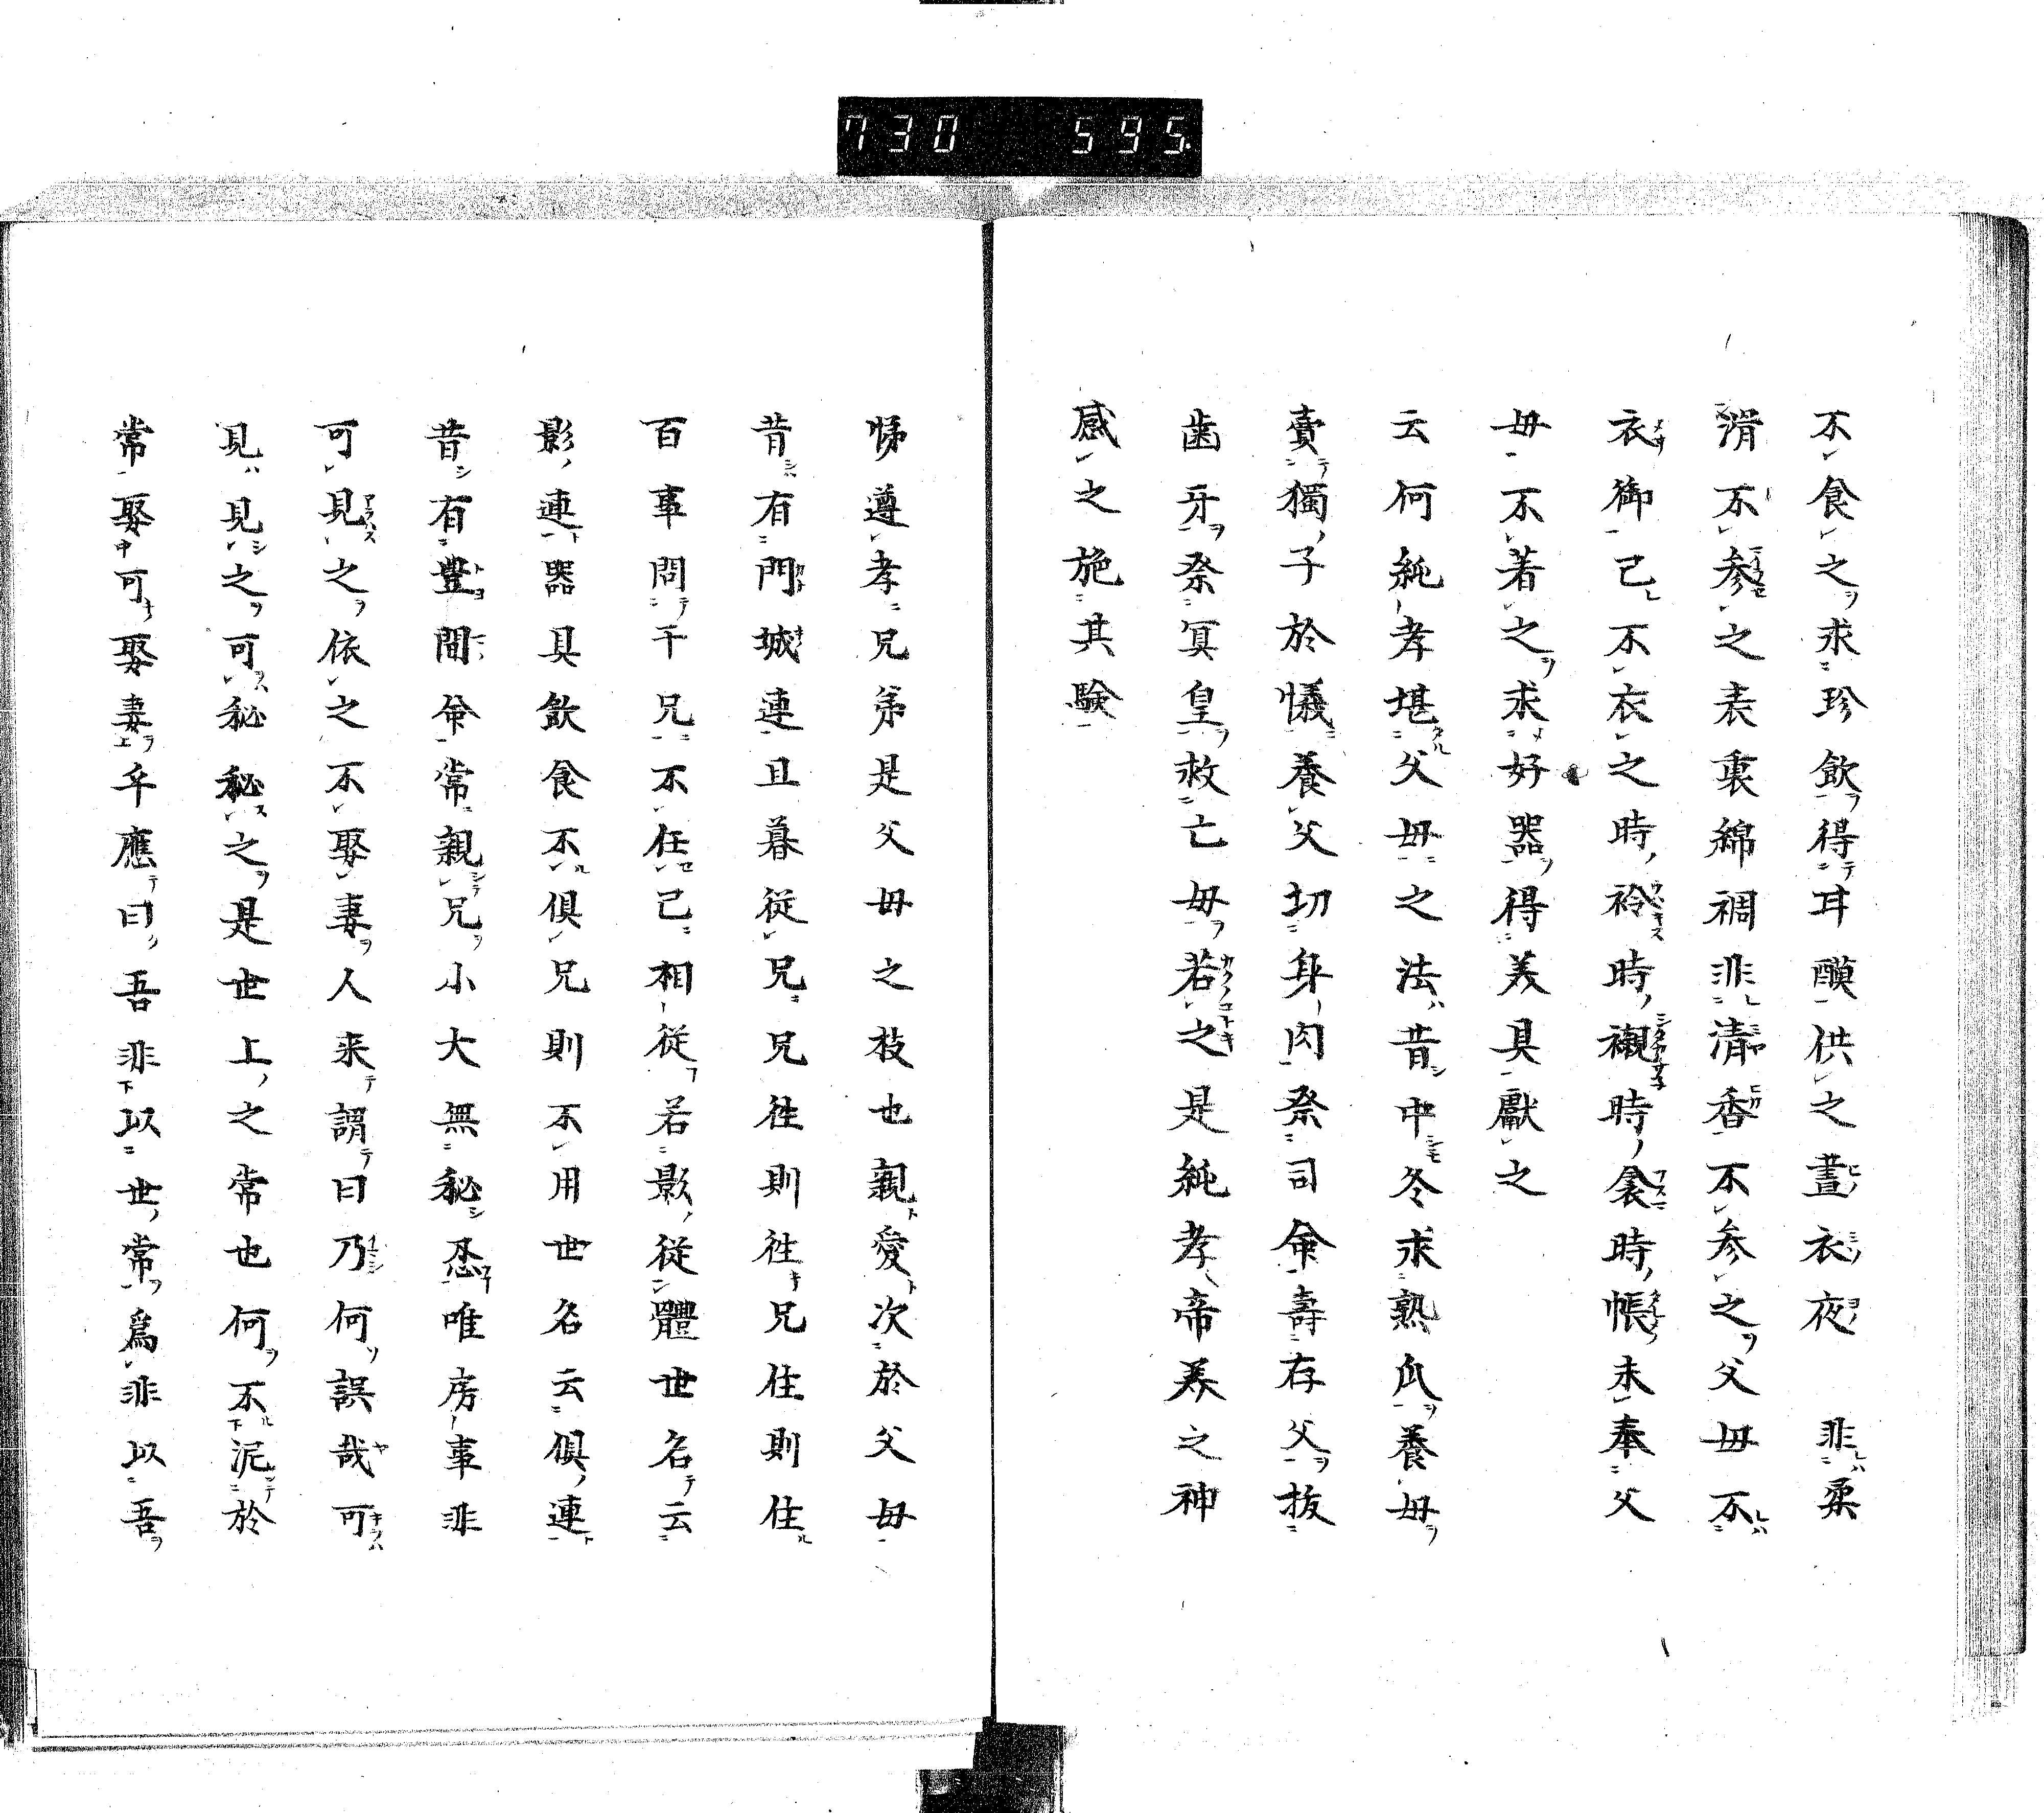 730 595
不食之求珍飲得耳醵供之晝衣夜 非柔
滑不参之表裏綿裯非清香不参之父母不
衣御己不衣之時衿時襯時衾時帳未奉父
母不著之求好器得美具獻之
云何純孝堪父母之法昔中冬求熟瓜養母
賣獨子於懺養父切身肉祭司命壽存父抜
歯牙祭冥皇救亡母若之是純孝帝美之神
感之施其験
悌遵孝兄弟是父母之枝也親愛次於父母
昔有門城連且暮従兄兄往則往兄住則住
百事問于兄不任己相従若影従體世名云
影連器具飲食不倶兄則不用世名云倶連
昔有豊間命常親兄小大無秘忍唯房事非
可見之依之不娶妻人来謂曰乃何誤哉可
見見之可秘秘之是世上之常也何不泥於
常娶可娶妻乎應曰吾非以世常爲非以吾